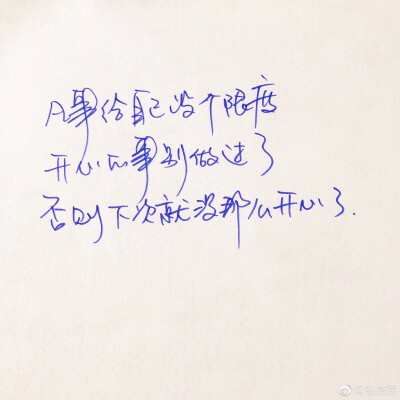 凡事给自己设个限度
开心的事别做过了
否则下次就没那么开心了.